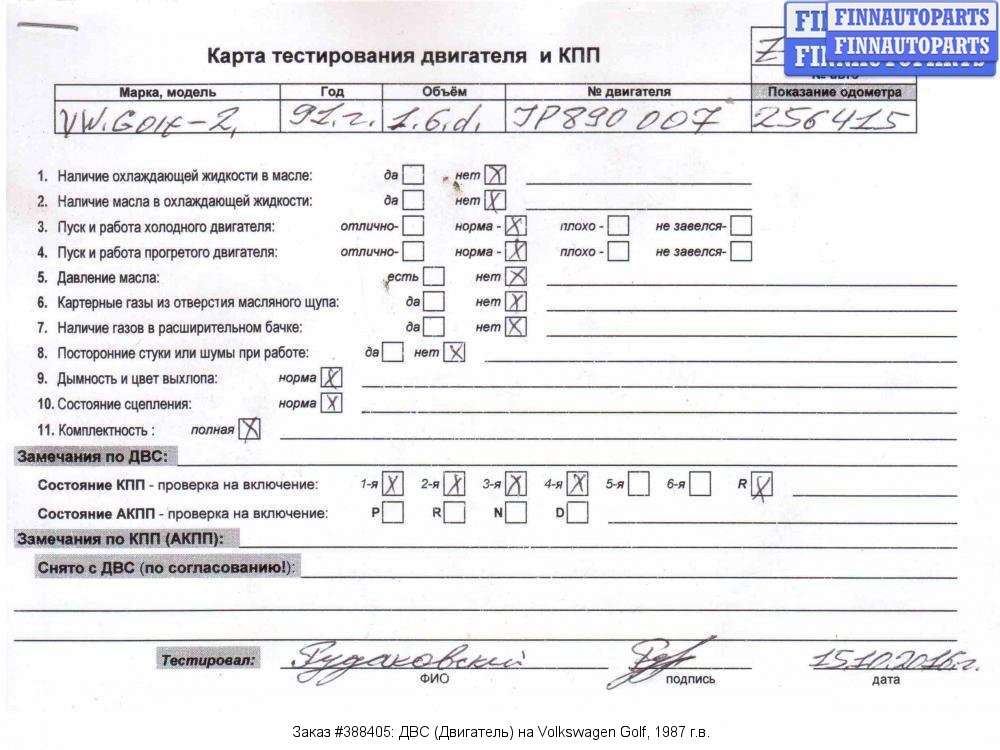 FINNAUTOPARTS
FINNAUTOPARTS
Карта тестирования двигателя и КПП
Z
№ авто
Марка, модель Год Объём № двигателя Показание одометра
VW.Golf-2, 91.г. 1.6.d. JP890 007 256415
1. Наличие охлаждающей жидкости в масле: да нет X
2. Наличие масла в охлаждающей жидкости: да нет X
3. Пуск и работа холодного двигателя: отлично- норма - X плохо - не завелся-
4. Пуск и работа прогретого двигателя: отлично- норма - X плохо - не завелся-
5. Давление масла: есть нет X
6. Картерные газы из отверстия масляного щупа: да нет X
7. Наличие газов в расширительном бачке: да нет X
8. Посторонние стуки или шумы при работе: да нет X
9. Дымность и цвет выхлопа: норма X
10. Состояние сцепления: норма X
11. Комплектность : полная X
Замечания по ДВС:
Состояние КПП - проверка на включение: 1-я X 2-я X 3-я X 4-я X 5-я 6-я R X
Состояние АКПП - проверка на включение: P R N D
Замечания по КПП (АКПП):
Снято с ДВС (по согласованию!):
Тестировал: Рудаковский 15.10.2016.г.
ФИО подпись дата
Заказ #388405: ДВС (Двигатель) на Volkswagen Golf, 1987 г.в.